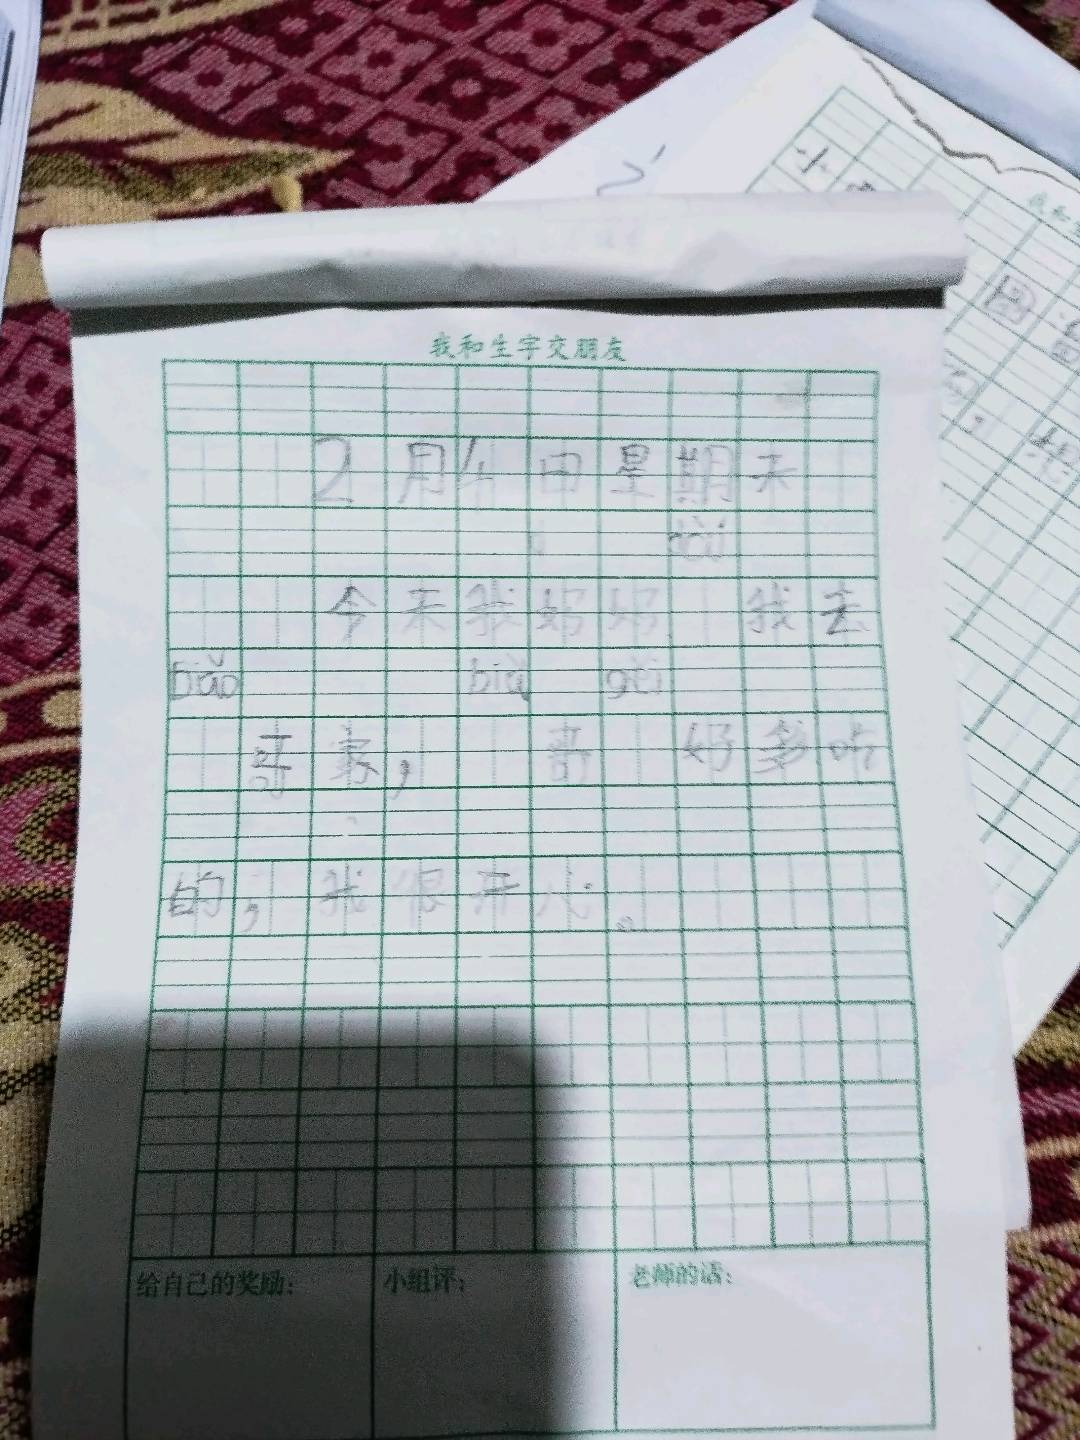 我和生字交朋友
2月4日星期天
dài
今天我妈妈 我去
biǎo biǎ gěi
哥家, 哥 好多吃
的,我很开心。
给自己的奖励: 小组评: 老师的话: